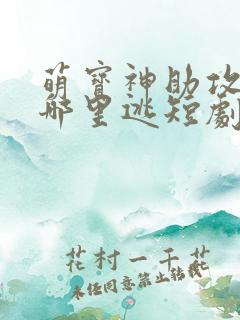 萌寳神助攻
哪里逃短劇
花村一千花
未经同意禁止转载